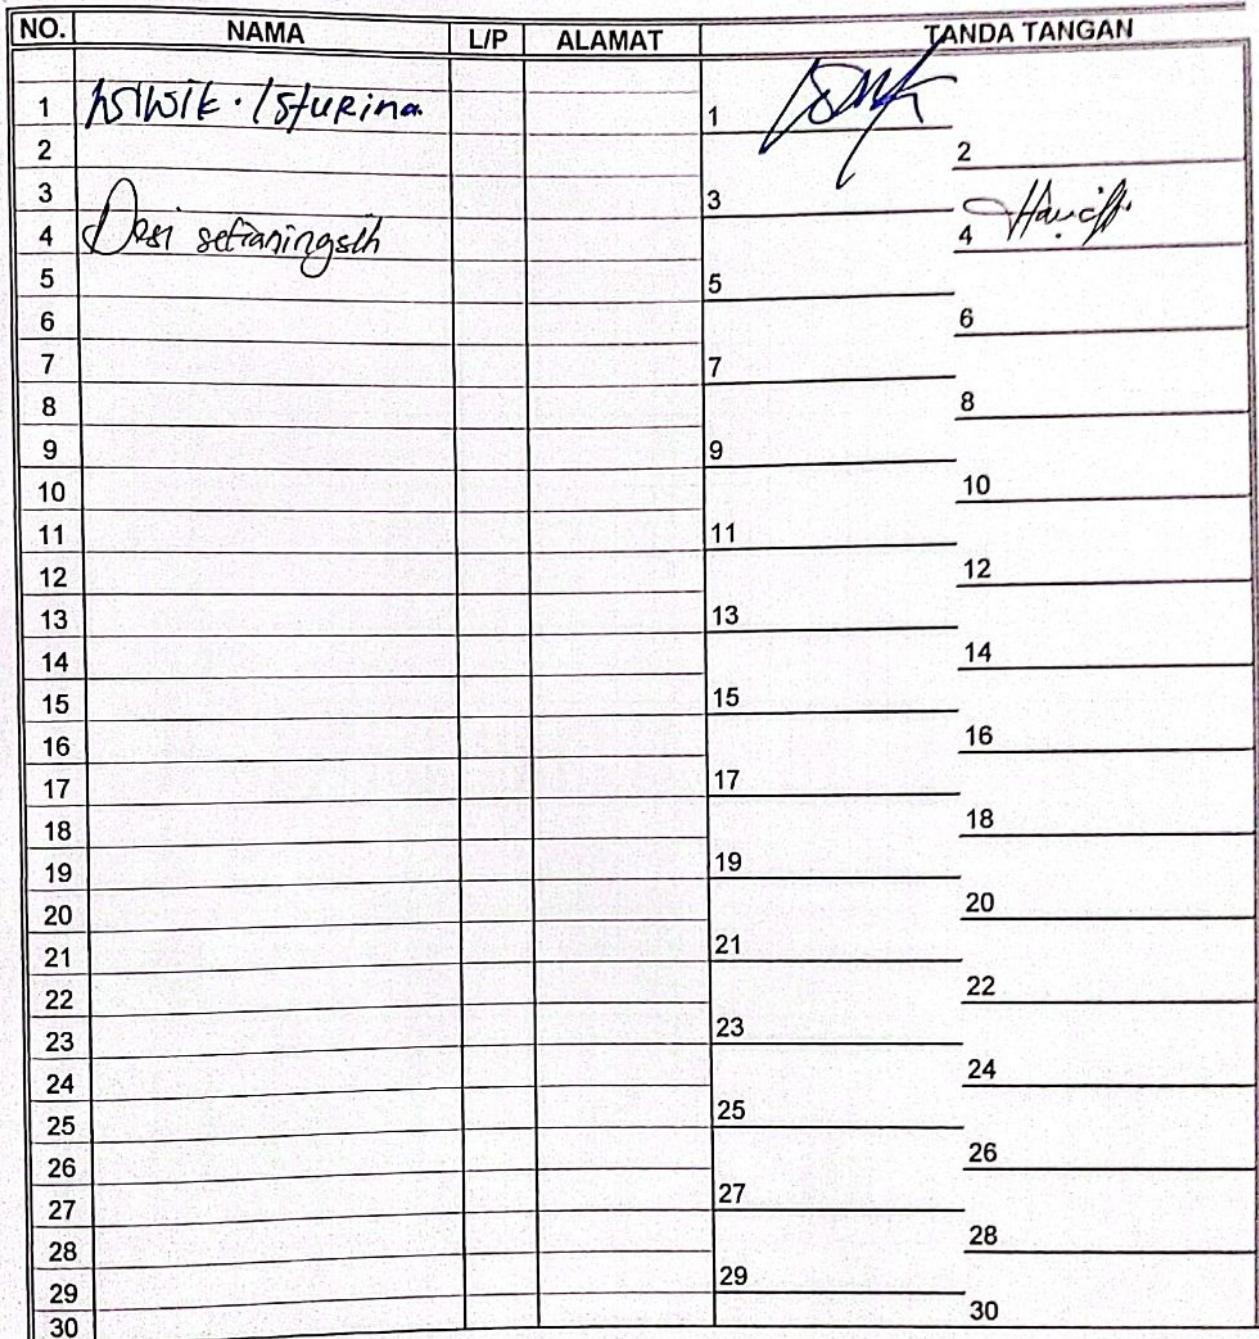 NO. NAMA L/P ALAMAT TANDA TANGAN
1 Isturina 1
2 2
3 3
4 Desi setianingsih 4
5 5
6 6
7 7
8 8
9 9
10 10
11 11
12 12
13 13
14 14
15 15
16 16
17 17
18 18
19 19
20 20
21 21
22 22
23 23
24 24
25 25
26 26
27 27
28 28
29 29
30 30